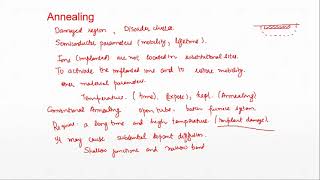 Annealing
Damaged region , Disorder cluster.
Semiconductor parameters (mobility, lifetime).
Ions (implanted) are not located in substitutional sites.
To activate the implanted ions and to restore mobility.
other material parameter.
Temperature. (time), (Annealing)
Conventional Annealing open tube. batch furnace system.
Require a long time and high temperature (implant damage).
It may cause substantial dopant diffusion.
Shallow junctions and narrow